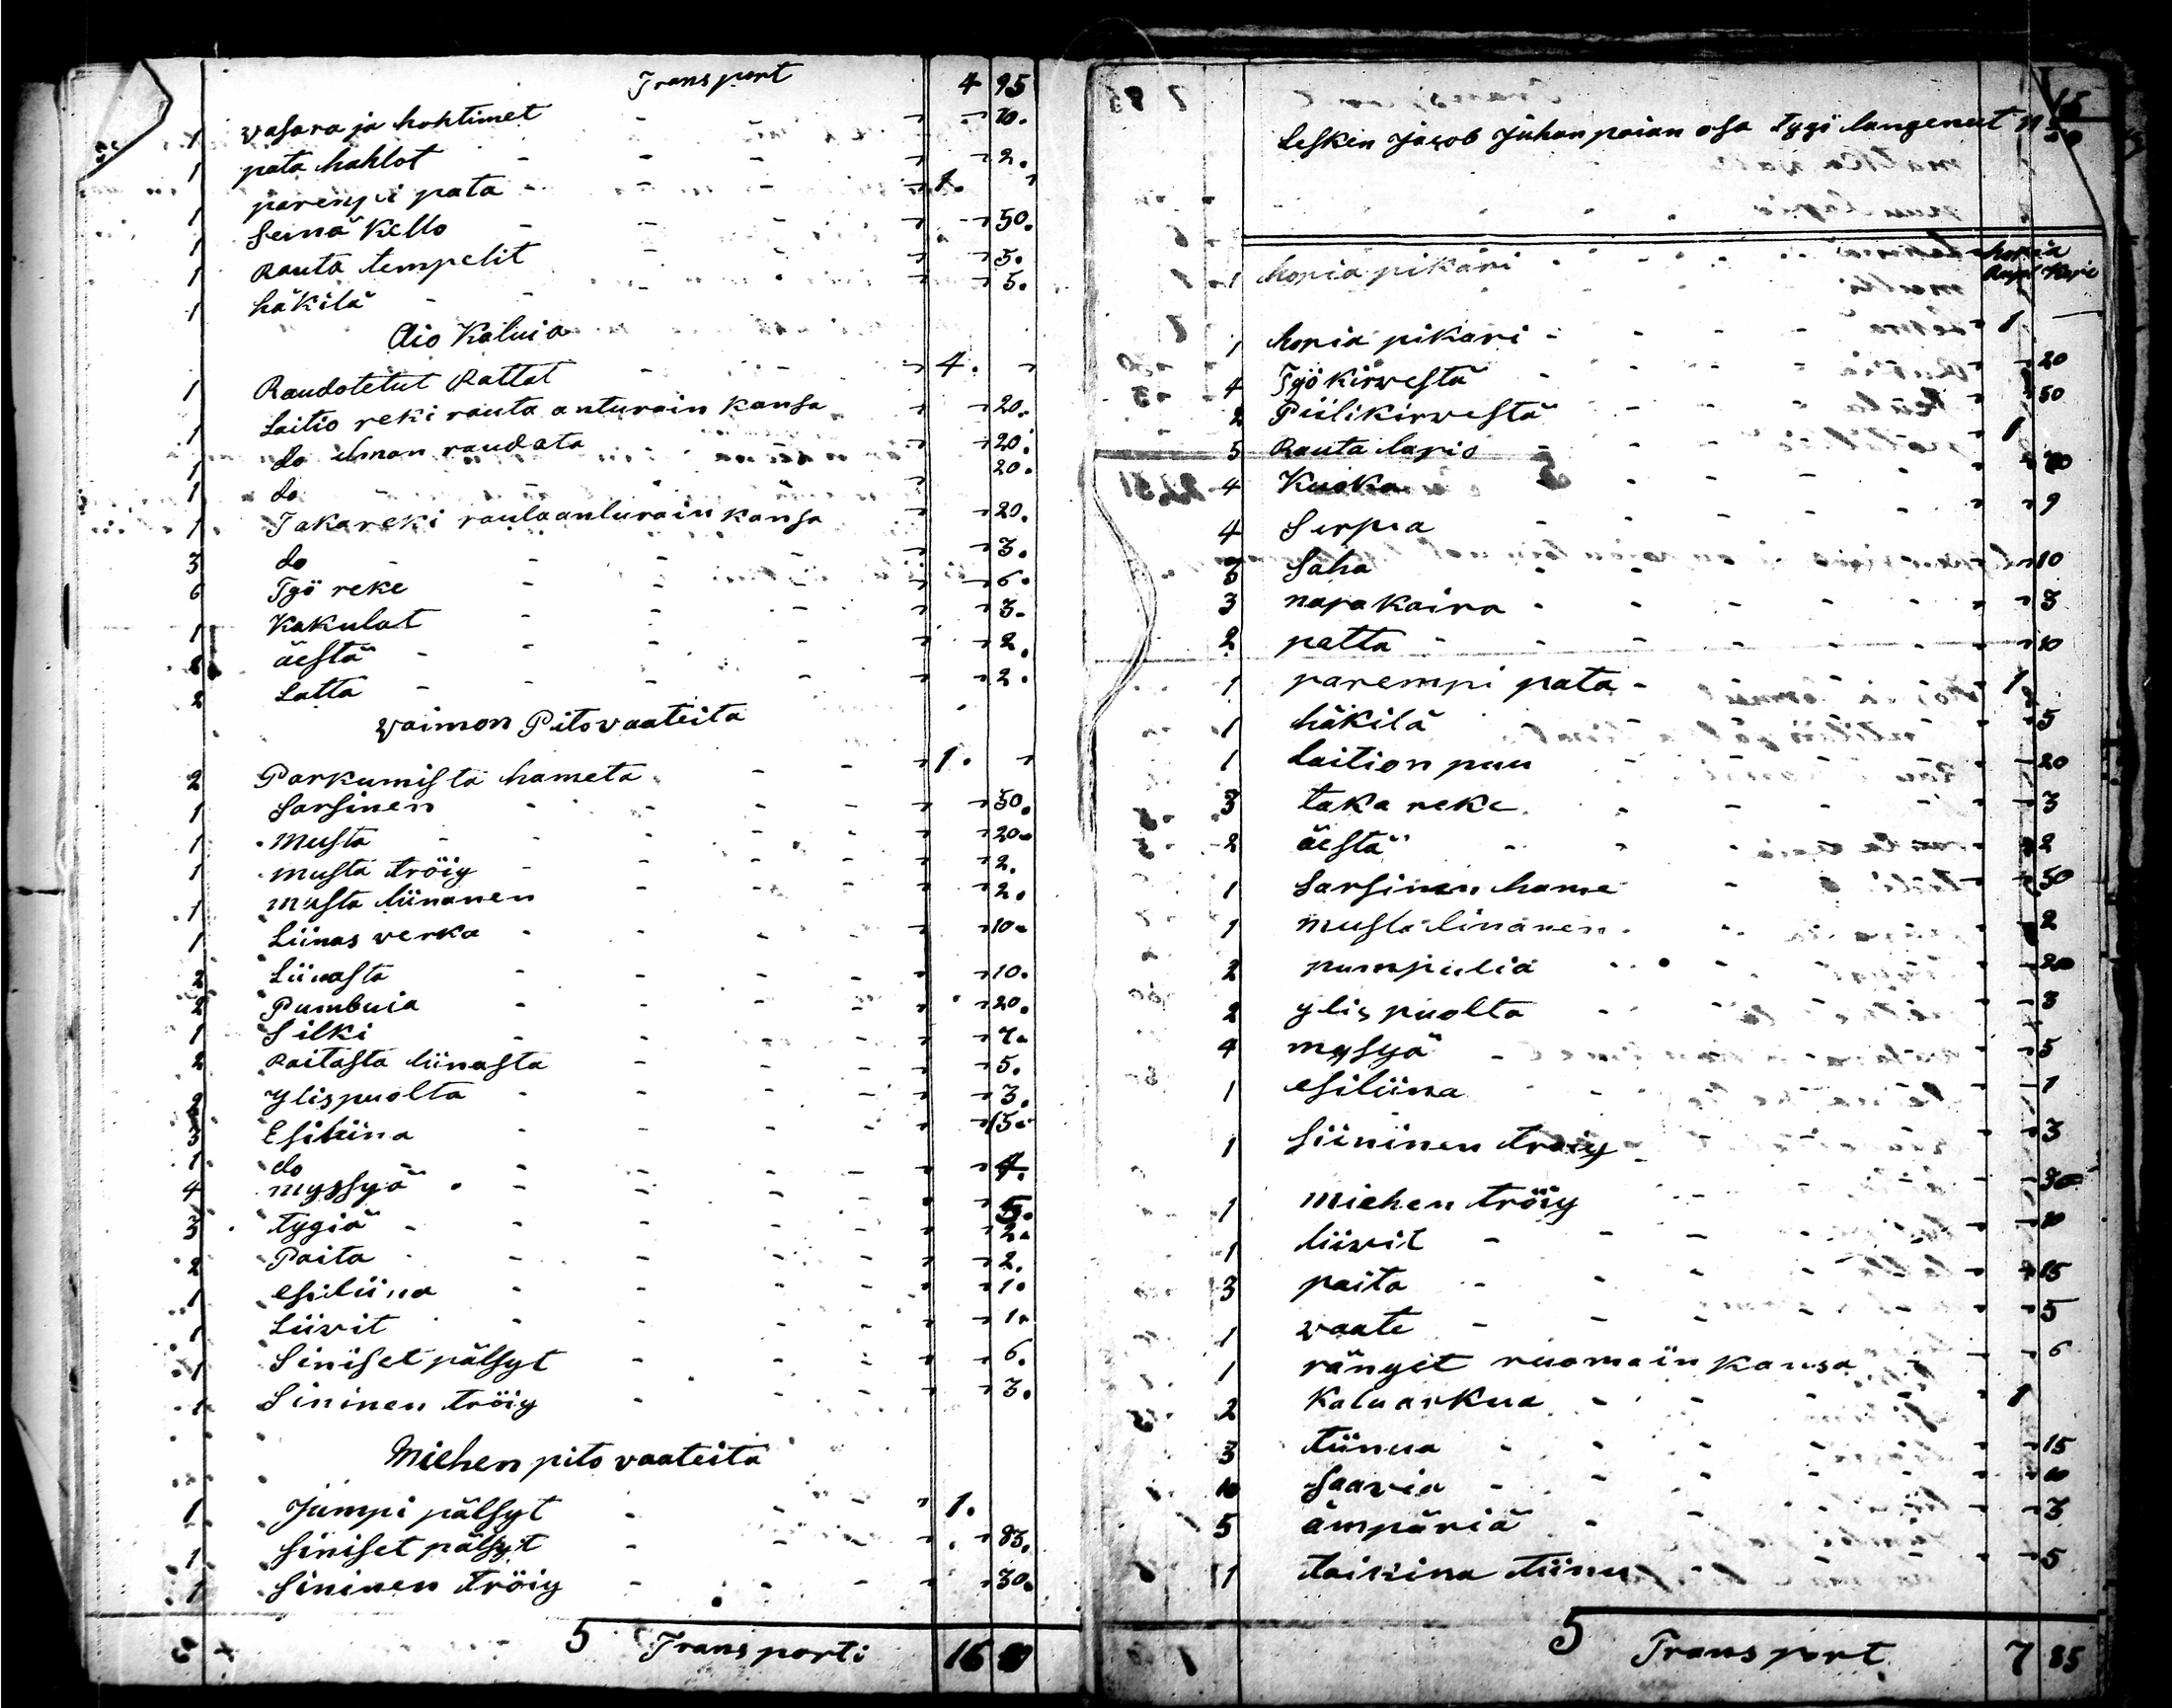 Transport 4 95
1 vasara ja hohtimet 10.
1 pata hahlot 2.
1 parempi pata 1.
1 Seinä Kello 50.
1 Rauta tempelit 3.
1 häkilä 5.
Aio Kaluia
1 Raudotetut Rattat 4.
1 Laitio reki rauta anturain kansa 20.
1 do ilman raudata 20.
1 do 20.
1 Takareki rautaanturain kansa 20.
3 do 3.
6 Työ reke 6.
1 Kakulat 3.
äestä 2.
2 Latta 2.
vaimon Pito vaateita
2 Parkumista hameta 1.
1 Sarsinen 50.
1 Musta 20.
1 musta tröiy 2.
1 musta liinanen 2.
1 Liinas verka 10.
2 Liinasta 10.
2 Pumbuia 20.
1 Silki 7.
2 Raitasta liinasta 5.
2 ylispuolta 3.
3 Esiliina 15.
1 do 4.
4 myssyä 5.
3 tygiä 2.
2 Paita 2.
1 esiliina 1.
1 Liivit 1.
1 Siniset pälsyt 6.
1 Sininen tröiy 3.
Miehen pito vaateita
1 Jämpi pälsyt 1.
1 Siniset pälsyt 83.
1 Sininen tröiy 30.
5 Transporti 16
Lesken Jacob Juhanpoian osa tygö langenut
hopia
Rupl Kopi
1 hopia pikari
1 hopia pikari 1
4 Työkirvestä 20
2 Piilikirvestä 50
5 Rauta lapio 1
4 Kuoka
4 Sirpia 9
3 Saha 10
3 napa kaira 3
2 patta 10
1 parempi pata 1
1 häkilä 5
1 laition puu 20
3 taka reke 3
2 äestä 2
1 Sarsinen hame 50
1 musta linanen 2
2 pumpulia 20
2 ylis puolta 3
4 mysyä 5
1 esiliina 1
1 Siininen tröiy 3
1 miehen tröiy 30
1 liivit 10
3 paita 15
1 vaate 5
1 ränget ruomain kansa 6
2 Kaluarkua 1
3 tiinua 15
10 Saavia 10
5 ämpäriä 3
1 taikina tiinu 5
5 Transport 7 85